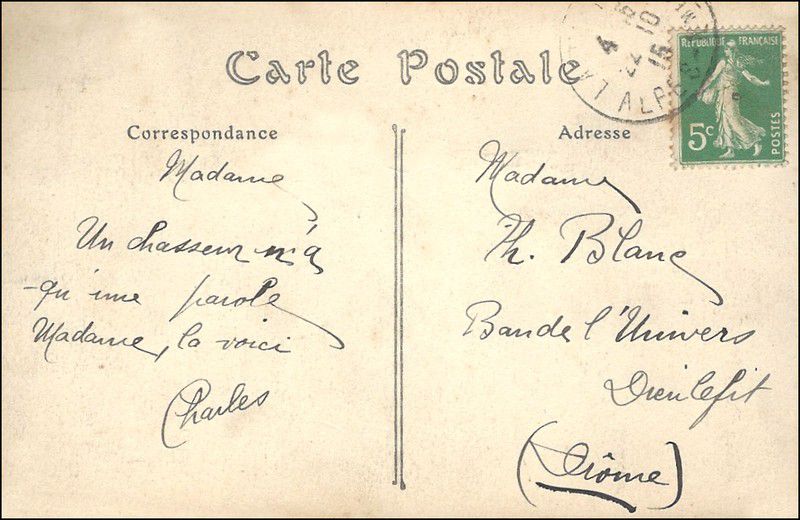 Carte Postale
RÉPUBLIQUE FRANÇAISE
5c
POSTES
4
22 10
15
ALPES
Correspondance
Madame
Un chasseur n'a
qu'une parole
Madame, la voici
Charles
Adresse
Madame
Th. Blanc
Bande l'Univers
Dieulefit
(Drôme)